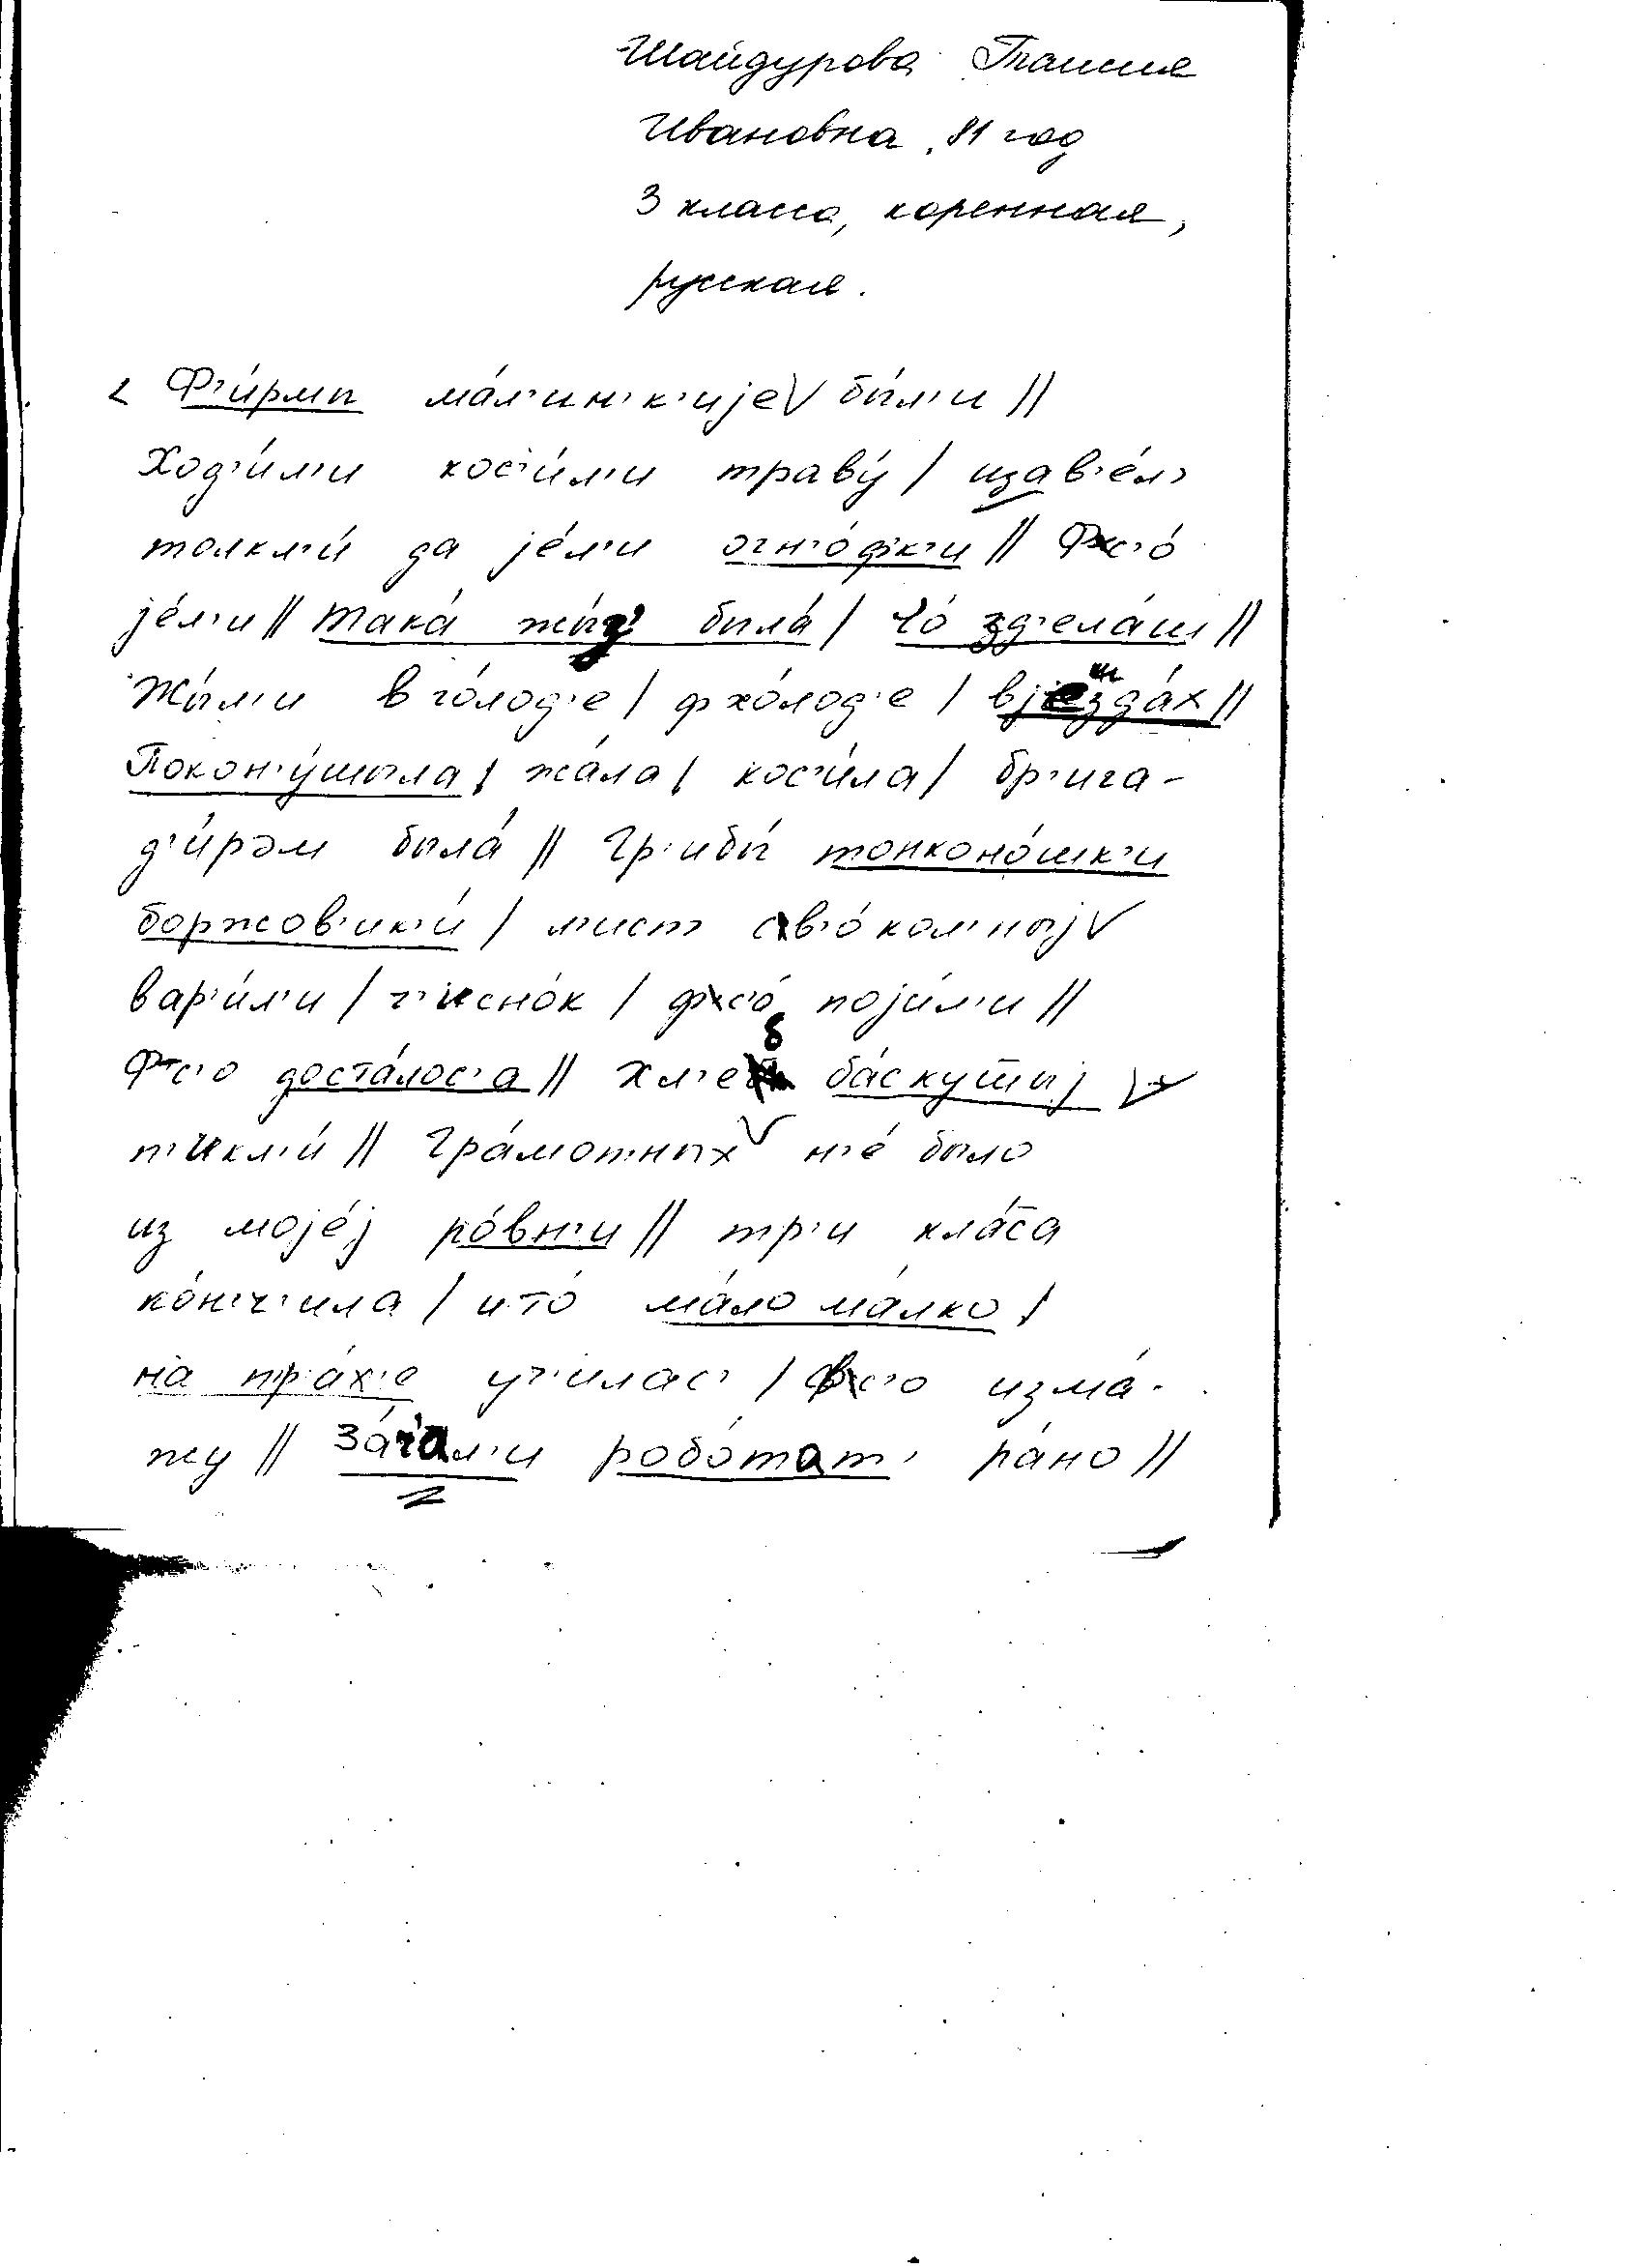 Шайдурова Таисия
Ивановна, 81 год
3 класса, коренная,
русская.
Ф'и́рмы ма́л'ин'к'иjе бы́л'и //
Ход'и́л'и кос'и́л'и траву́ / щав'е́л'
толкл'и́ да jе́л'и огн'о́фк'и // Фс'о́
jе́л'и // Така́ жы́з' была́ / Чо́ зд'ела́ш //
Жы́л'и в го́лод'е / ф хо́лод'е /
Покон'у́шыла / жа́ла / кос'и́ла / бр'ига-
д'и́рэм была́ // Гр'ибы́ тонконо́шк'и
боржов'ик'и́ / л'ист св'о́кол'ныj
вар'и́л'и / ч'исно́к / фс'о́ поjи́л'и //
Фс'о доста́лос'а // Хл'еб ба́скут̄ыj
п'икл'и́ // Гра́мотных н'е́ было
из моjе́j ро́вн'и // тр'и кла́с̄а
ко́н'ч'ила / и то́ ма́ло ма́лко /
на пр'а́х'е уч'илас' / фс'о изма́-
жу // За́ч'ал'и робо́тат' ра́но //